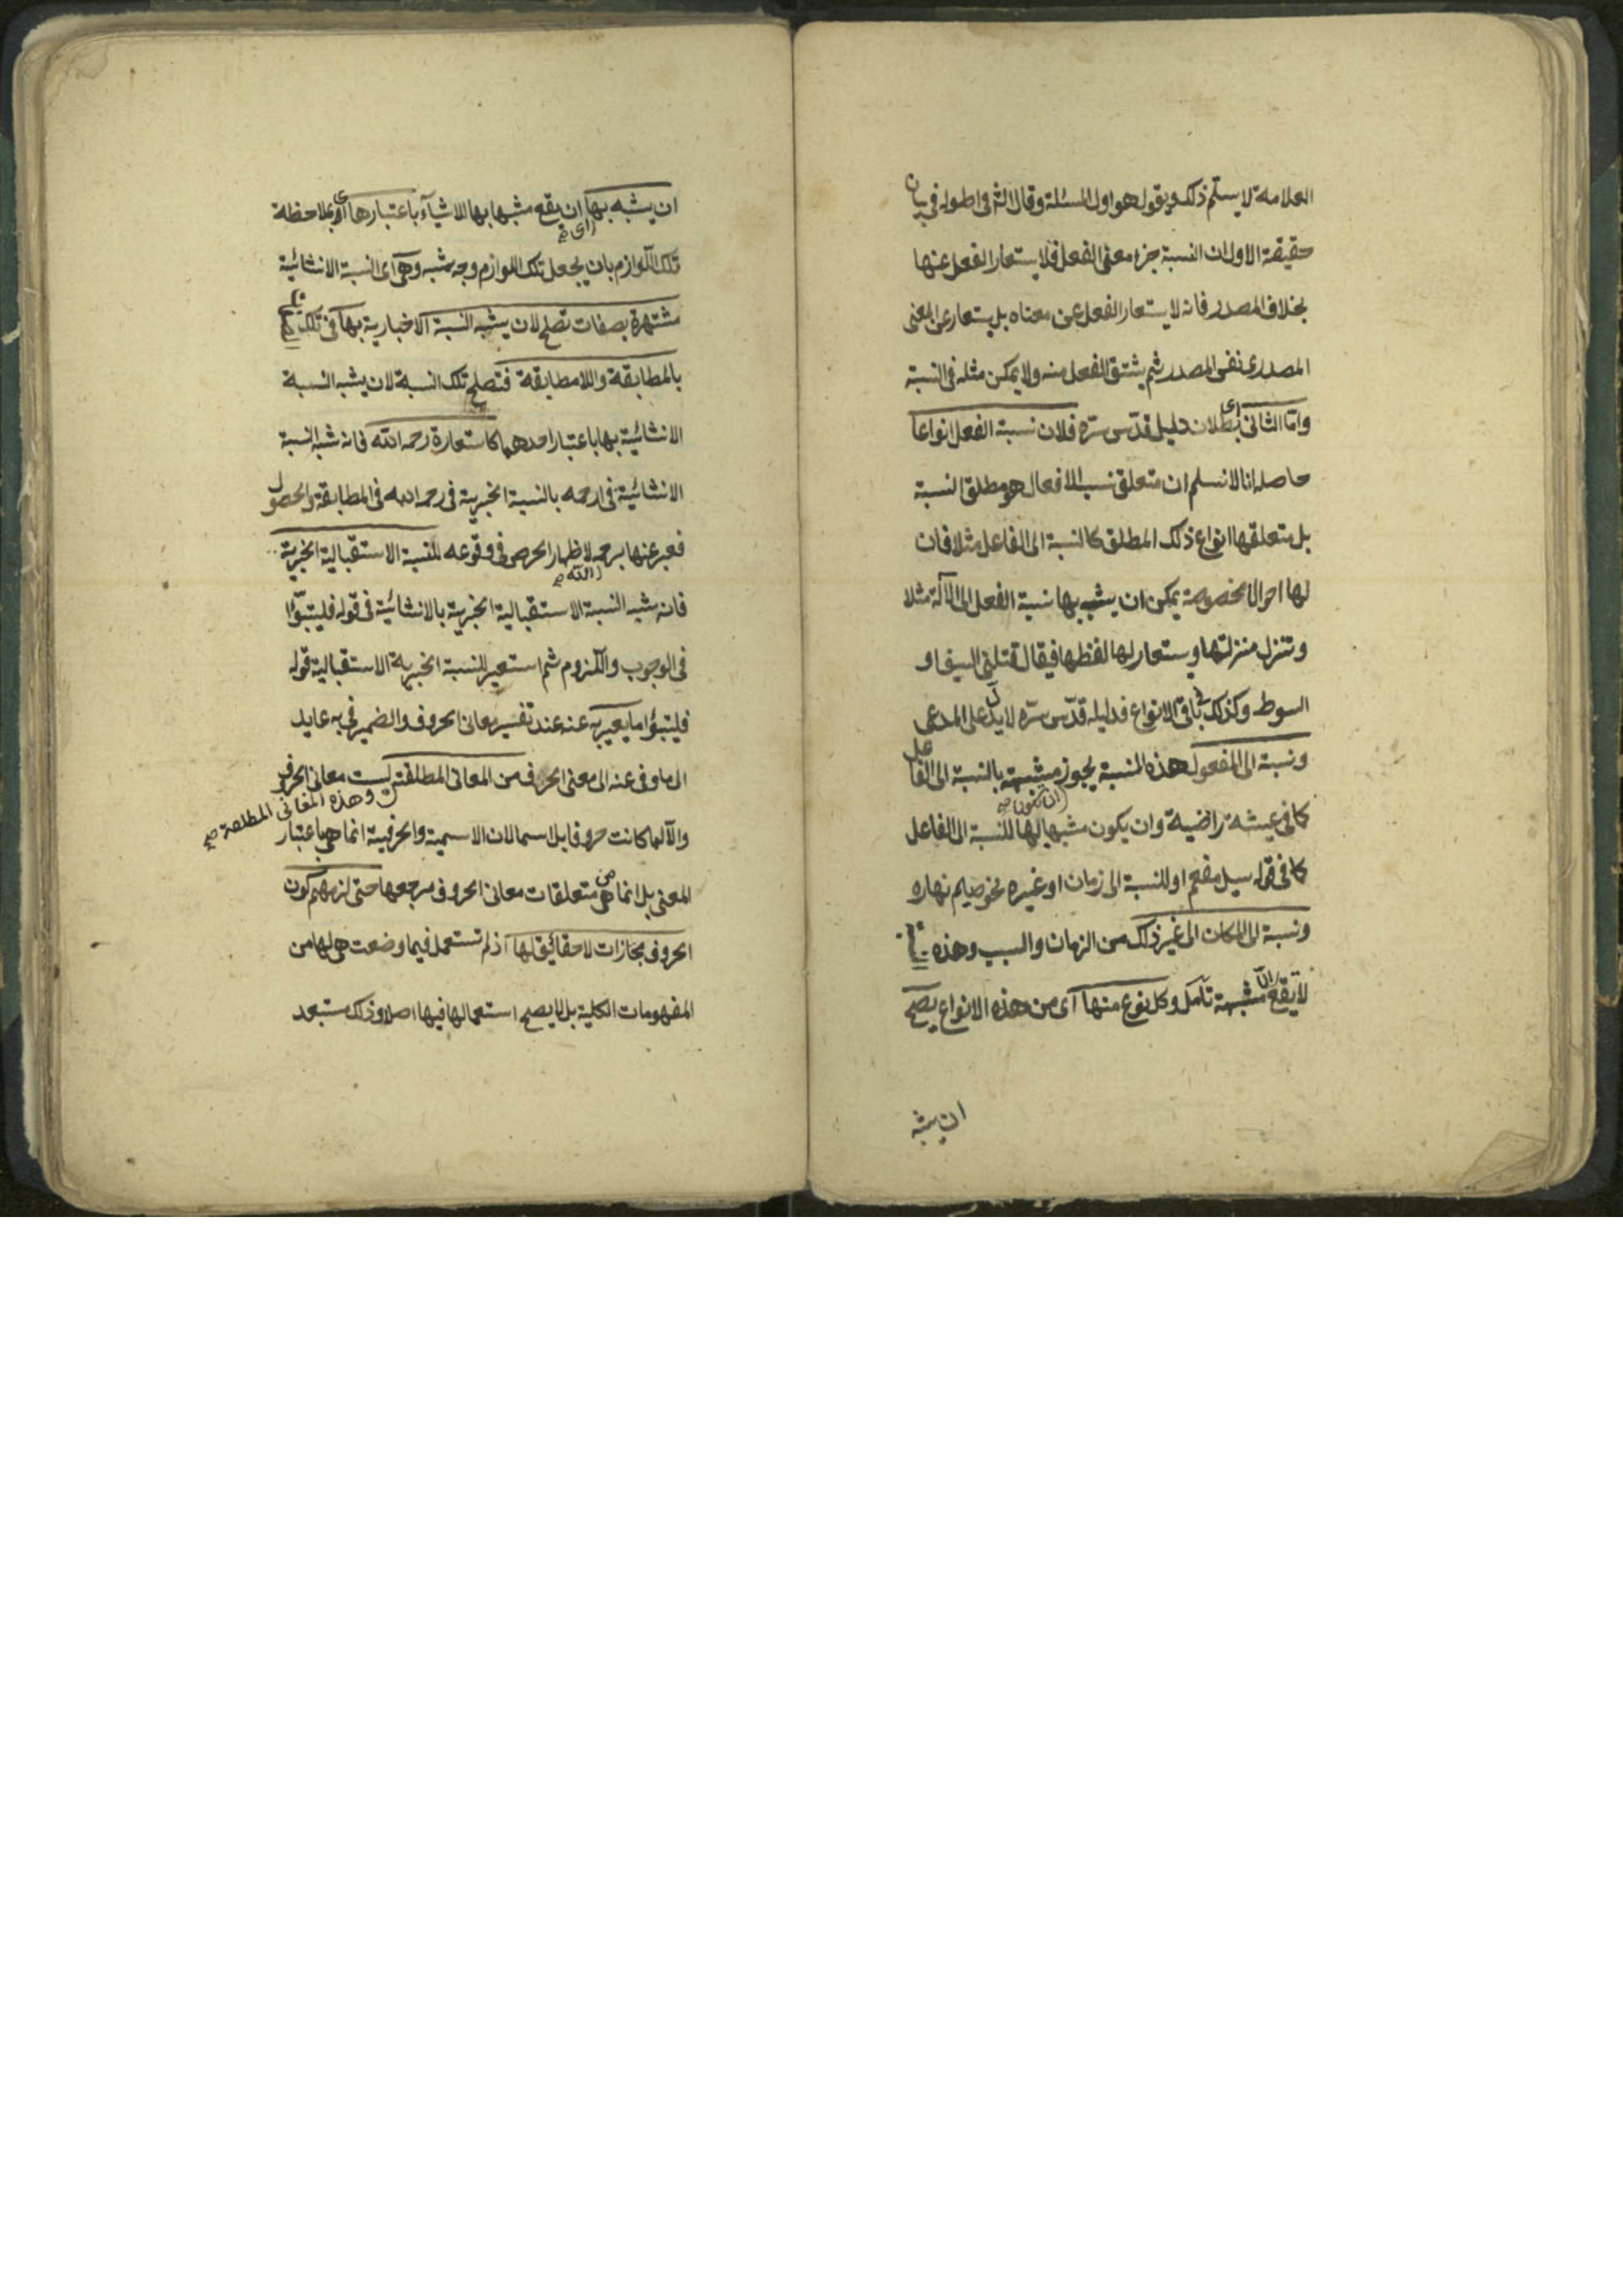 العلامة لا يسلم ذلك ويقول هو اول المسئلة وقال الشر فى اطوله فى بيان
حقيقة الاول ان النسبة جزء معنى الفعل فلا يستعار الفعل عنها
بخلاف المصدر فانه لا يستعار الفعل عن معناه بل يستعار عن المعنى
المصدرى نفس المصدر ثم يشتق الفعل منه ولا يمكن مثله فى النسبة
واما الثانى اى بطلان دليل قدس سره فلان نسبة الفعل انواعا
حاصله انا لا نسلم ان متعلق نسب الافعال هو مطلق النسبة
بل متعلقها انواع ذلك المطلق كالنسبة الى الفاعل مثلا فان
لها احوال مخصوصة يمكن ان يشبه بها نسبة الفعل الى الآلة مثلا
وتنزل منزلتها ويستعار لها لفظها فيقال قتلنى السيف او
السوط وكذلك فى باقى الانواع فدليله قدس سره لا يدل على المدعى
ونسبة الى المفعول هذه النسبة يجوز ان تكون صح مشبهة بالنسبة الى الفاعل
كما فى عيشة راضية وان يكون مشبها بها للنسبة الى الفاعل
كما فى قوله سيل مفعم او للنسبة الى زمان او غيره نحو صيام نهاره
ونسبة الى المكان الى غير ذلك من الزمان والسبب وهذه
لا يقع الا مشبهة تأمل وكل نوع منها اى من هذه الانواع يصح
ان يشبه
ان يشبه بها اى صح ان يقع مشبها بها للاشياء باعتبارها اى بملاحظة
تلك اللوازم بان يجعل تلك اللوازم وجه شبه وهى اى النسبة الانشائية
مشتهرة بصفات تصلح لان يشبه النسبة الاخبارية بها فى تلك
بالمطابقة واللامطابقة فتصلح تلك النسبة لان يشبه النسبة
الانشائية بها باعتبار احدهما كاستعارة رحمه الله فانه شبه النسبة
الانشائية فى ارحمه بالنسبة الخبرية فى رحمه الله فى المطابقة والحصول
فعبر عنها برحمه الله صح لاظهار الحرص فى وقوعه للنسبة الاستقبالية الخبرية
فانه شبه النسبة الاستقبالية الخبرية بالانشائية فى قوله فليتبوّا
فى الوجوب واللزوم ثم استعير للنسبة الخبرية الاستقبالية قوله
فليتبؤا ما يعبر به عنه عند تفسير معانى الحروف والضمير فى به عايد
الى ما وفى عنه الى معنى الحرف من المعانى المطلقة وهذه المعانى المطلقة صح ليست معانى الحروف
والا لما كانت حروفا بل اسما لان الاسمية والحرفية انما هى باعتبار
المعنى بل انما هى من متعلقات معانى الحروف مرجعها حتى لزمهم كون
الحروف مجازات لا حقائق لها اذ لم تستعمل فيما وضعت هى لها من
المفهومات الكلية بل لا يصح استعمالها فيها اصلا وذلك مستبعد